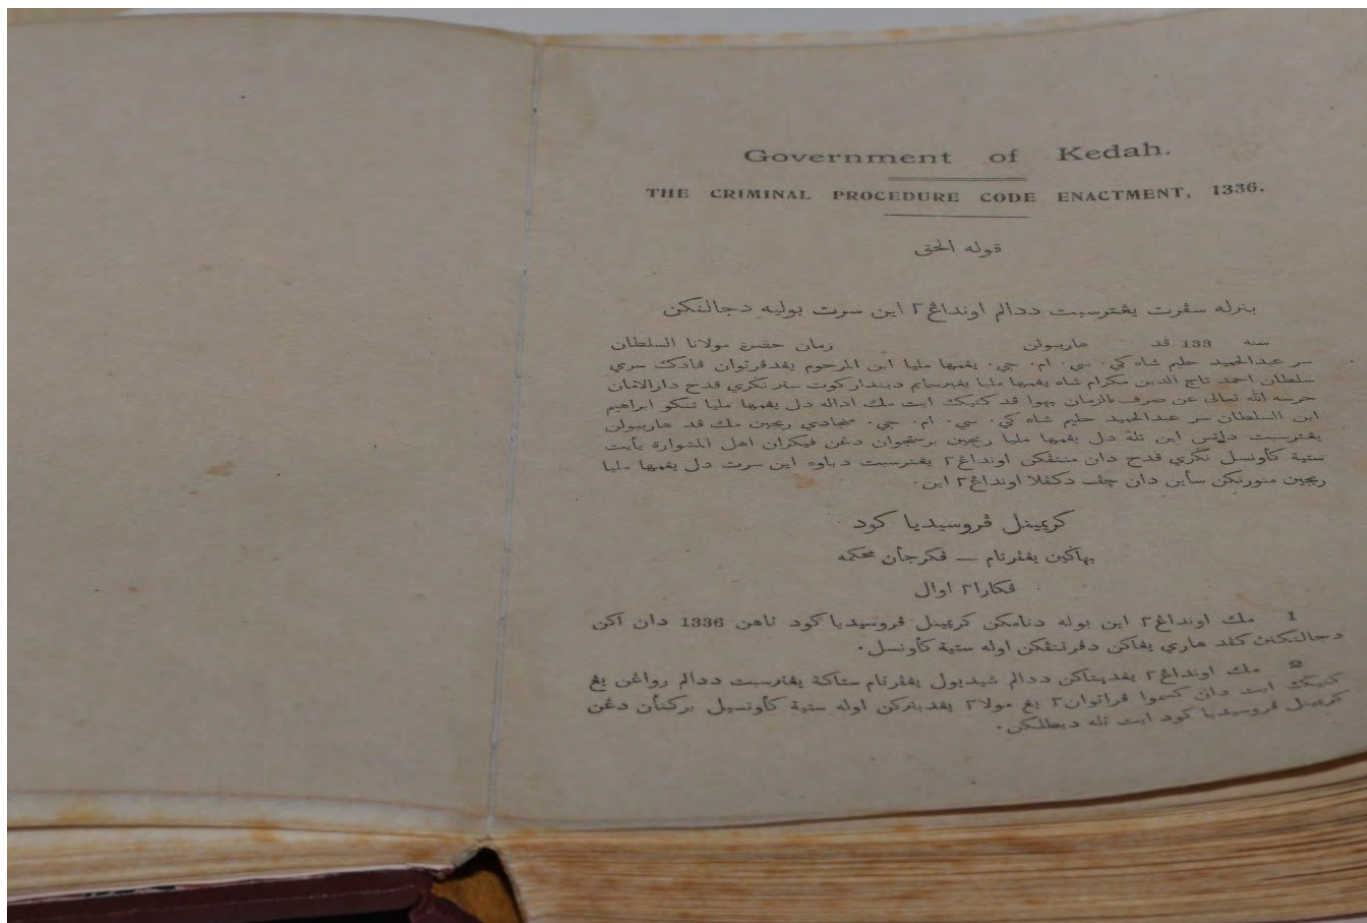 Government of Kedah.
THE CRIMINAL PROCEDURE CODE ENACTMENT, 1336.
قوله الحق
بنرله سڤرت يڠترسبت ددالم اونداڠ٢ اين سرت بوليه دجالنكن
سنه 133 قد هاريبولن زمان حضرة مولانا السلطان
سر عبدالحميد حليم شاه كي. سي. ام. جي. يڠمها مليا ابن المرحوم يڠدڤرتوان ڤادك سري
سلطان احمد تاج الدين مكرام شاه يڠمها مليا يڠبرسمايم دبندار كوت ستر نڬري قدح دارالامان
حرسه الله تعالى عن صرف الزمان بهوا قد كتيك ايت مك اداله دل يڠمها مليا تنكو ابراهيم
ابن السلطان سر عبدالحميد حليم شاه كي. سي. ام. جي. منجادي ريجين مك قد هاريبولن
يڠترسبت دأتس اين تله دل يڠمها مليا ريجين برستجوان دڠن فيكران اهل المشوارة يأيت
ستية كأونسل نڬري قدح دان منتڤكن اونداڠ٢ يڠترسبت دباوه اين سرت دل يڠمها مليا
ريجين منورنكن ساين دان چڤ دكڤلا اونداڠ٢ اين.
كريمينل ڤروسيديا كود
بهاڬين يڠڤرتام — ڤكرجأن محكمه
ڤكارا٢ اوال
1 مك اونداڠ٢ اين بوله دنامكن كريمينل ڤروسيديا كود تاهن 1336 دان اكن
دجالنكنڽ كڤد هاري يڠاكن دڤرنتڤكن اوله ستية كأونسل.
2 مك اونداڠ٢ يڠدڽتاكن ددالم شيديول يڠڤرتام ستاكة يڠترسبت ددالم رواڠن يڠ
كتيڬ ايت دان كسموا ڤراتوان٢ يڠ مولا٢ يڠدبنركن اوله ستية كأونسيل بركنأن دڠن
كريمينل ڤروسيديا كود ايت تله دبطلكن.